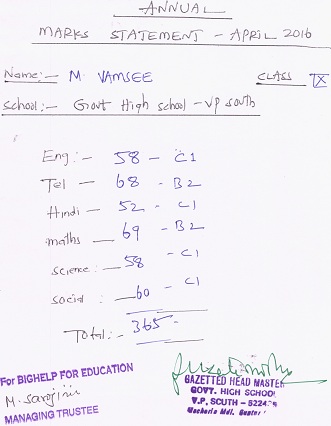 ANNUAL
MARKS STATEMENT - APRIL 2016
Name:- M. VAMSEE CLASS IX
School:- Govt High school - VP south
Eng:- 58 - C1
Tel - 68 - B2
Hindi - 52 - C1
maths - 69 - B2
science:- 58 - C1
social :- 60 - C1
Total:- 365 -
For BIGHELP FOR EDUCATION
M. Sarojini
MANAGING TRUSTEE
GAZETTED HEAD MASTER
GOVT. HIGH SCHOOL
V.P. SOUTH - 52243
Macherla Mdl. Guntur